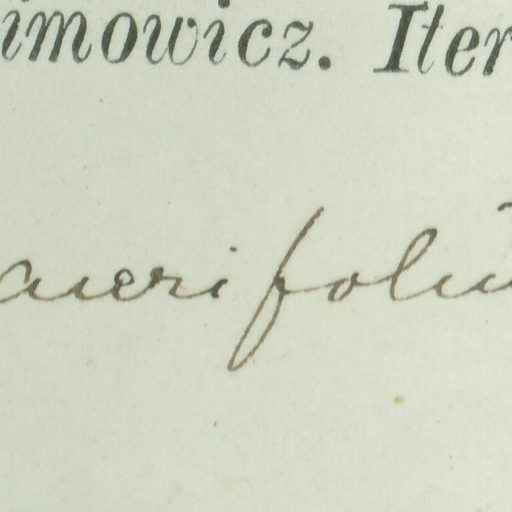 imowicz. Iter
acerifoliu